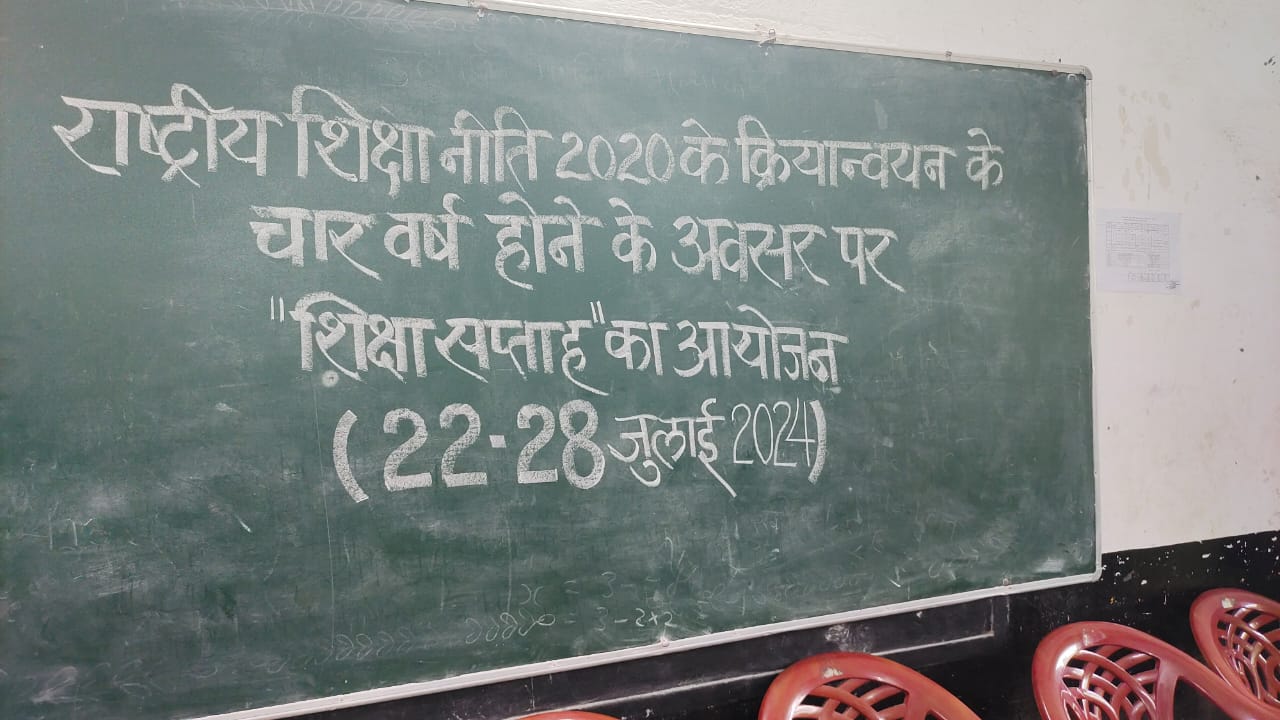 राष्ट्रीय शिक्षा नीति 2020 के क्रियान्वयन के
चार वर्ष होने के अवसर पर
"शिक्षा सप्ताह" का आयोजन
(22-28 जुलाई 2024)